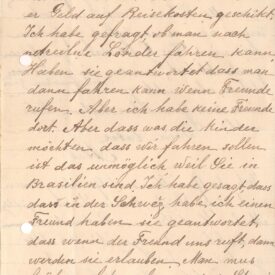 er Geld auf Reisekosten geschikt
Ich habe gefragt ob man nach
netreilne Länder fahren kann,
Haben sie geantwortet dass man
dann fahren kann wenn Freunde
rufen. Aber ich habe keine Freunde
dort. Aber dass was die kinder
möchten dass wir fahren sollen
ist das unmöglich weil Sie in
Brasilien sind. Ich habe gesagt dass
dass in der Schweiz, habe ich einen
Freund haben sie geantwortet,
dass wenn der Freund uns ruft, dann
werden sie erlauben. Man muss